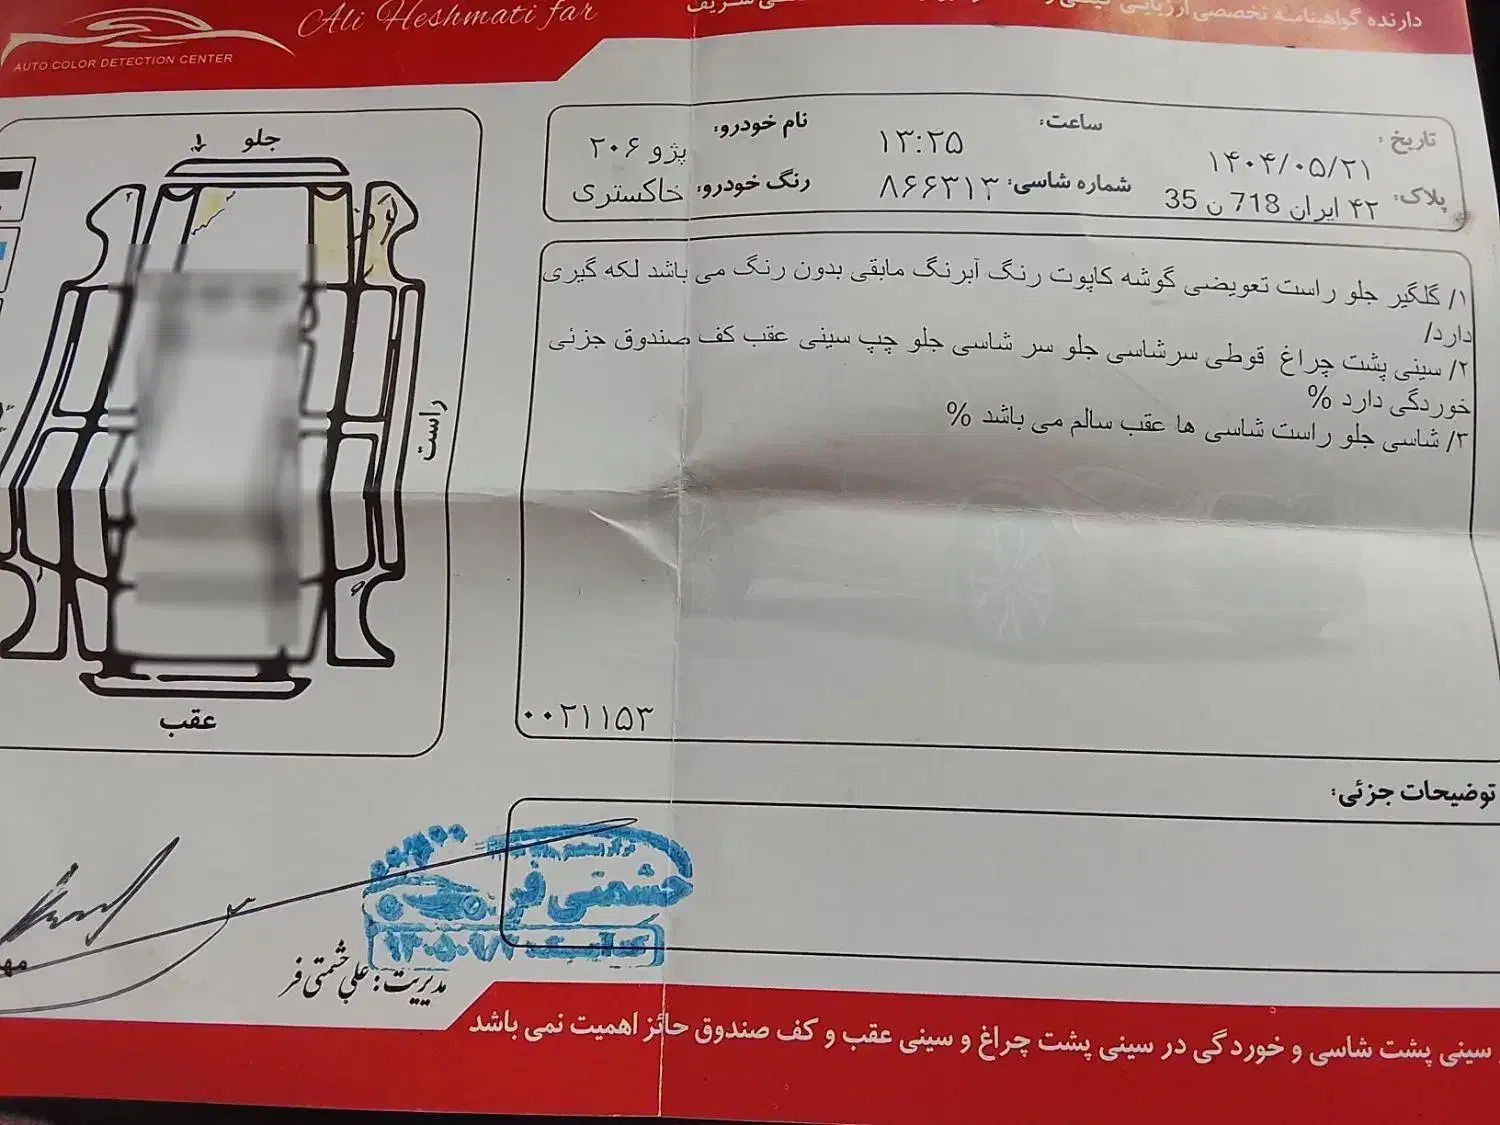 Ali Heshmati far
دارنده گواهینامه تخصصی ارزیابی
شریف
AUTO COLOR DETECTION CENTER
تاریخ: ۱۴۰۴/۰۵/۲۱
ساعت: ۱۳:۲۵
نام خودرو: پژو ۲۰۶
پلاک: ۴۲ ایران 718 ن 35
شماره شاسی: ۸۶۶۳۱۳
رنگ خودرو: خاکستری
۱/ گلگیر جلو راست تعویضی گوشه کاپوت رنگ آبرنگ مابقی بدون رنگ می باشد لکه گیری
دارد/
۲/ سینی پشت چراغ قوطی سرشاسی جلو سر شاسی جلو چپ سینی عقب کف صندوق جزئی
خوردگی دارد %
۳/ شاسی جلو راست شاسی ها عقب سالم می باشد %
۰۰۲۱۱۵۳
جلو
راست
عقب
توضیحات جزئی:
حشمتی فر
مدیریت: علی حشمتی فر
سینی پشت شاسی و خوردگی در سینی پشت چراغ و سینی عقب و کف صندوق حائز اهمیت نمی باشد